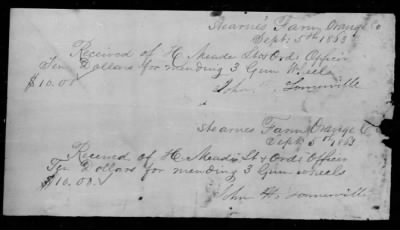 Stearnes Farm, Orange Co
Sept. 5th 1863
Received of H Meade Lt & Ord. Officer
Ten Dollars for mending 3 Gun Wheels
$10.00 John H. Somerville
Stearnes Farm Orange Co
Sept 5th 1863
Received of H. Meade Lt & Ord. Officer
Ten Dollars for mending 3 Gun wheels
$10.00.
John H. Somerville